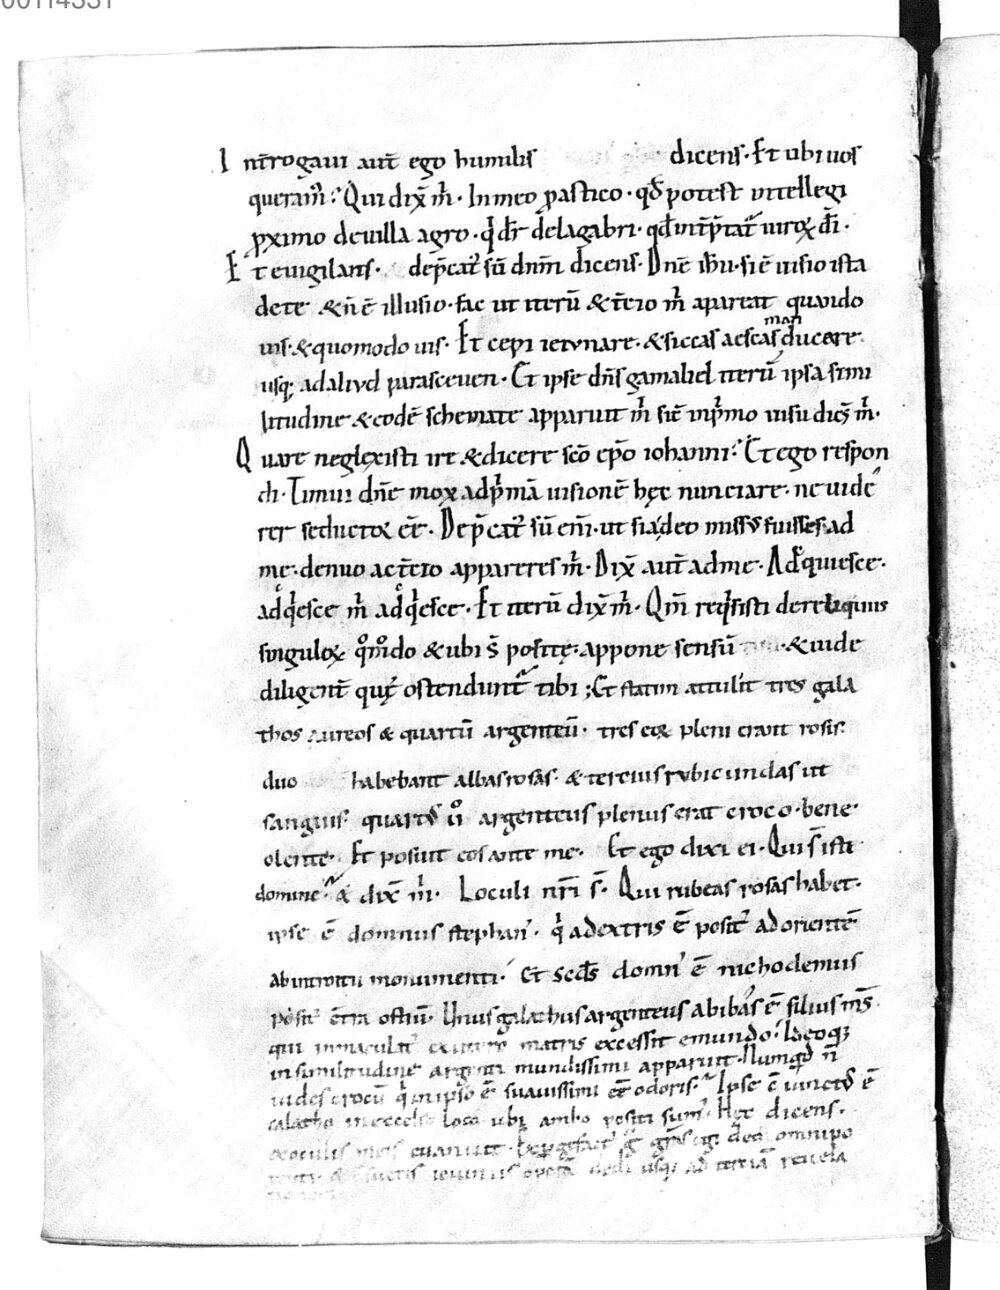 00114331
Int̄rogaui aut̄ ego humilis dicens. Et ubi uos
queram̄? Qui dix̄ m̄. In meo p̄astico. qđ potest intellegi
p̄ximo deuilla agro. q̄ dr̄ delagabri. qđ int̄p̄tat̄ uiroꝝ dī.
Et euigilans. dep̄cat᷒ sū dnm̄ dicens. Dnē ihū. si ē uisio ista
dete & n̄ ē illusio. fac ut iterū & t̄cio m̄ apareat quando
uis. & quomodo uis. Et cepi ieiunare. & siccas aescas man ducare.
usq; ad aliud parasceuen. Et ipse dn̄s gamaliel iterū ipsa simi
litudine & codē schemate apparuit m̄ sic̄ inp̄mo uisu dic̄s m̄.
Quare neglexisti ire & dicere sc̄o ep̄o iohanni? Et ego respon
di. Timui dn̄e mox adp̄mā uisionē hęc nunciare. ne uidē
rer seductor eē. Dep̄cat᷒ sū em̄. ut si adeo missus fuisses. ad
me. denuo ac t̄cio appareres m̄. Dix̄ aut̄ adme. Adquiesce.
adq̄esce m̄ adq̄esce. Et iterū dix̄ m̄. Qm̄ req̄sisti dereliquiis
singuloꝝ qm̄do & ubi s̄ positę. appone sensū & uide
diligent̄ quę ostendunt̄ tibi; Et statim attulit tres gala
thos aureos & quartū argenteū. tres eoꝝ pleni erant rosis.
duo habebant albas rosas. & tercius rubicundas ut
sanguis. quartus ū argenteus plenus erat croco. bene
olente. Et posuit eos ante me. Et ego dixi ei. Qui s̄ isti
domine? & dix̄ m̄. Loculi nr̄i s̄. Qui rubeas rosas habet.
ipse ē domnus stephan᷒. q̄ adextris ē posit᷒ ad orientē
ab introitu monumenti. Et scđs domn᷒ ē nichodemus
posit᷒ c̄tra ostiū. Unus galathus argenteus abibas ē filius m̄s
qui inmaculat᷒ matris excessit emundo. Ideoq;
insimilitudine argenti mundissimi apparuit. Numqđ n̄
uides crocū q̄ inipso ē suauissimi eē odoris? Ipse ē iunctus ē
calatho inexcelso loco ubi ambo positi sum᷒. Hęc dicens.
exoculis meis euanuit. Exp̄gefact᷒ g̅ grās egi deo omnipo
tenti. & ieiuniis usq; ad tertiā reuela